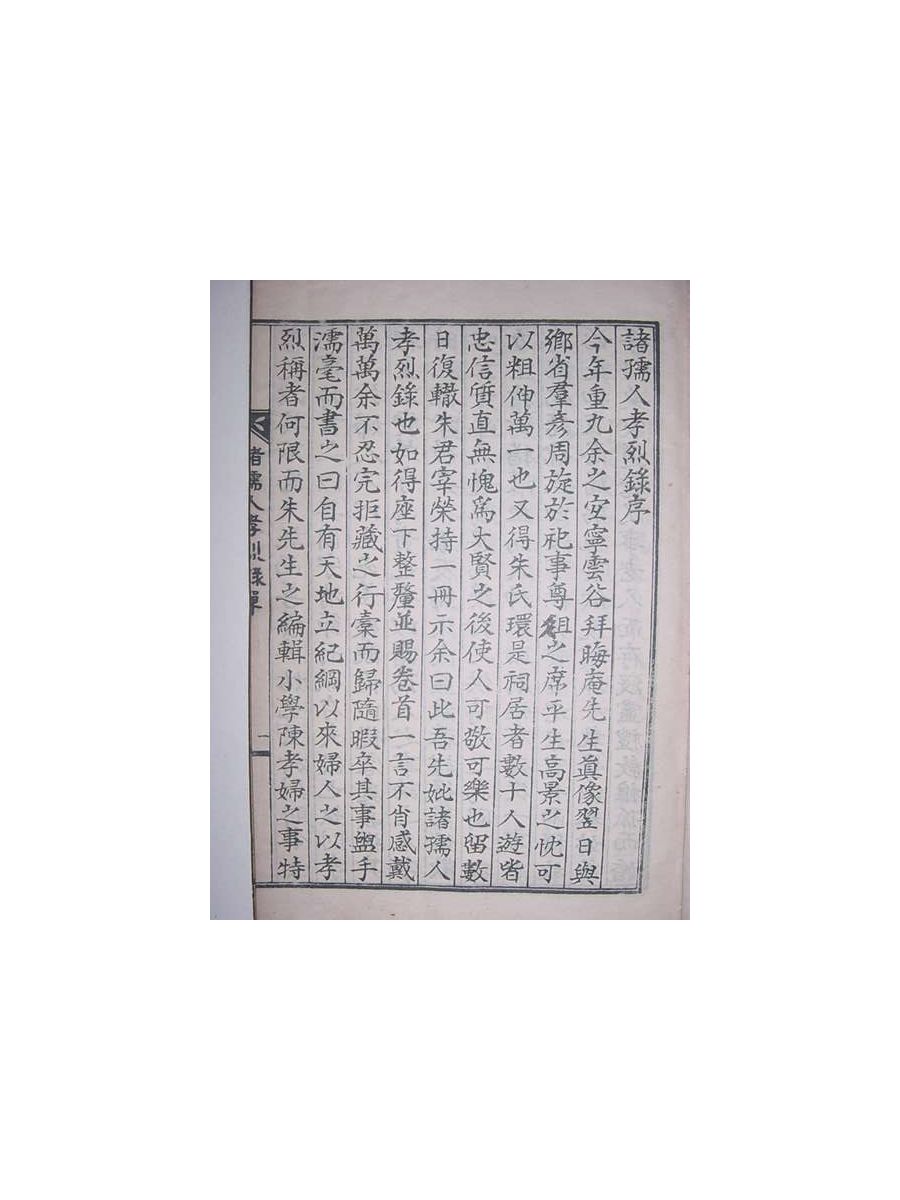 諸孺人孝烈錄序
今年重九余之安寧雲谷拜晦庵先生眞像翌日與
鄉省羣彥周旋於祀事尊俎之席平生高景之忱可
以粗伸萬一也又得朱氏環是祠居者數十人遊皆
忠信質直無愧爲大賢之後使人可敬可樂也留數
日復轍朱君宰榮持一冊示余曰此吾先妣諸孺人
孝烈錄也如得座下整釐並賜卷首一言不肖感戴
萬萬余不忍完拒藏之行橐而歸隨暇卒其事盥手
濡毫而書之曰自有天地立紀綱以來婦人之以孝
烈稱者何限而朱先生之編輯小學陳孝婦之事特
諸孺人孝烈錄單
一